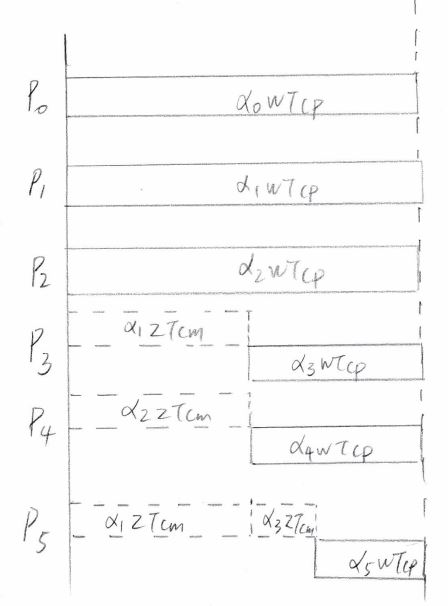 P₀ α₀wTcp
P₁ α₁wTcp
P₂ α₂wTcp
α₁zTcm
P₃ α₃wTcp
α₂zTcm
P₄ α₄wTcp
P₅ α₁zTcm α₃zTcm
α₅wTcp